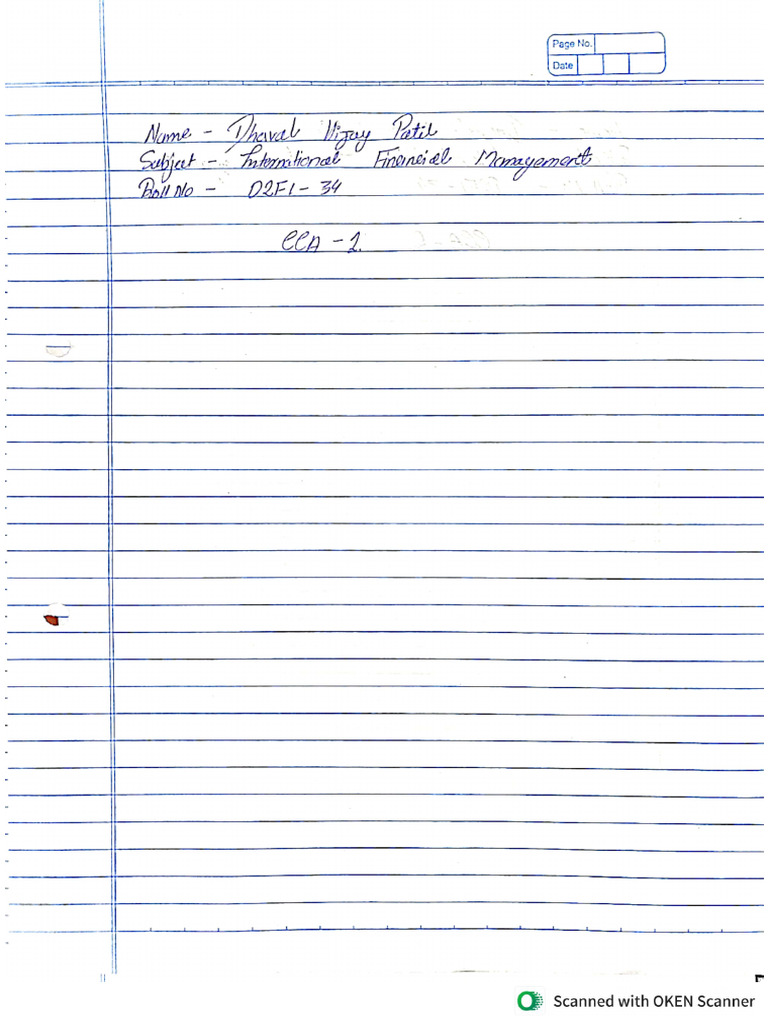 Page No.
Date
Name - Dhaval Vijay Patil
Subject - International Financial Management
Roll No - D2F1 - 34
CCA - 1.
Scanned with OKEN Scanner